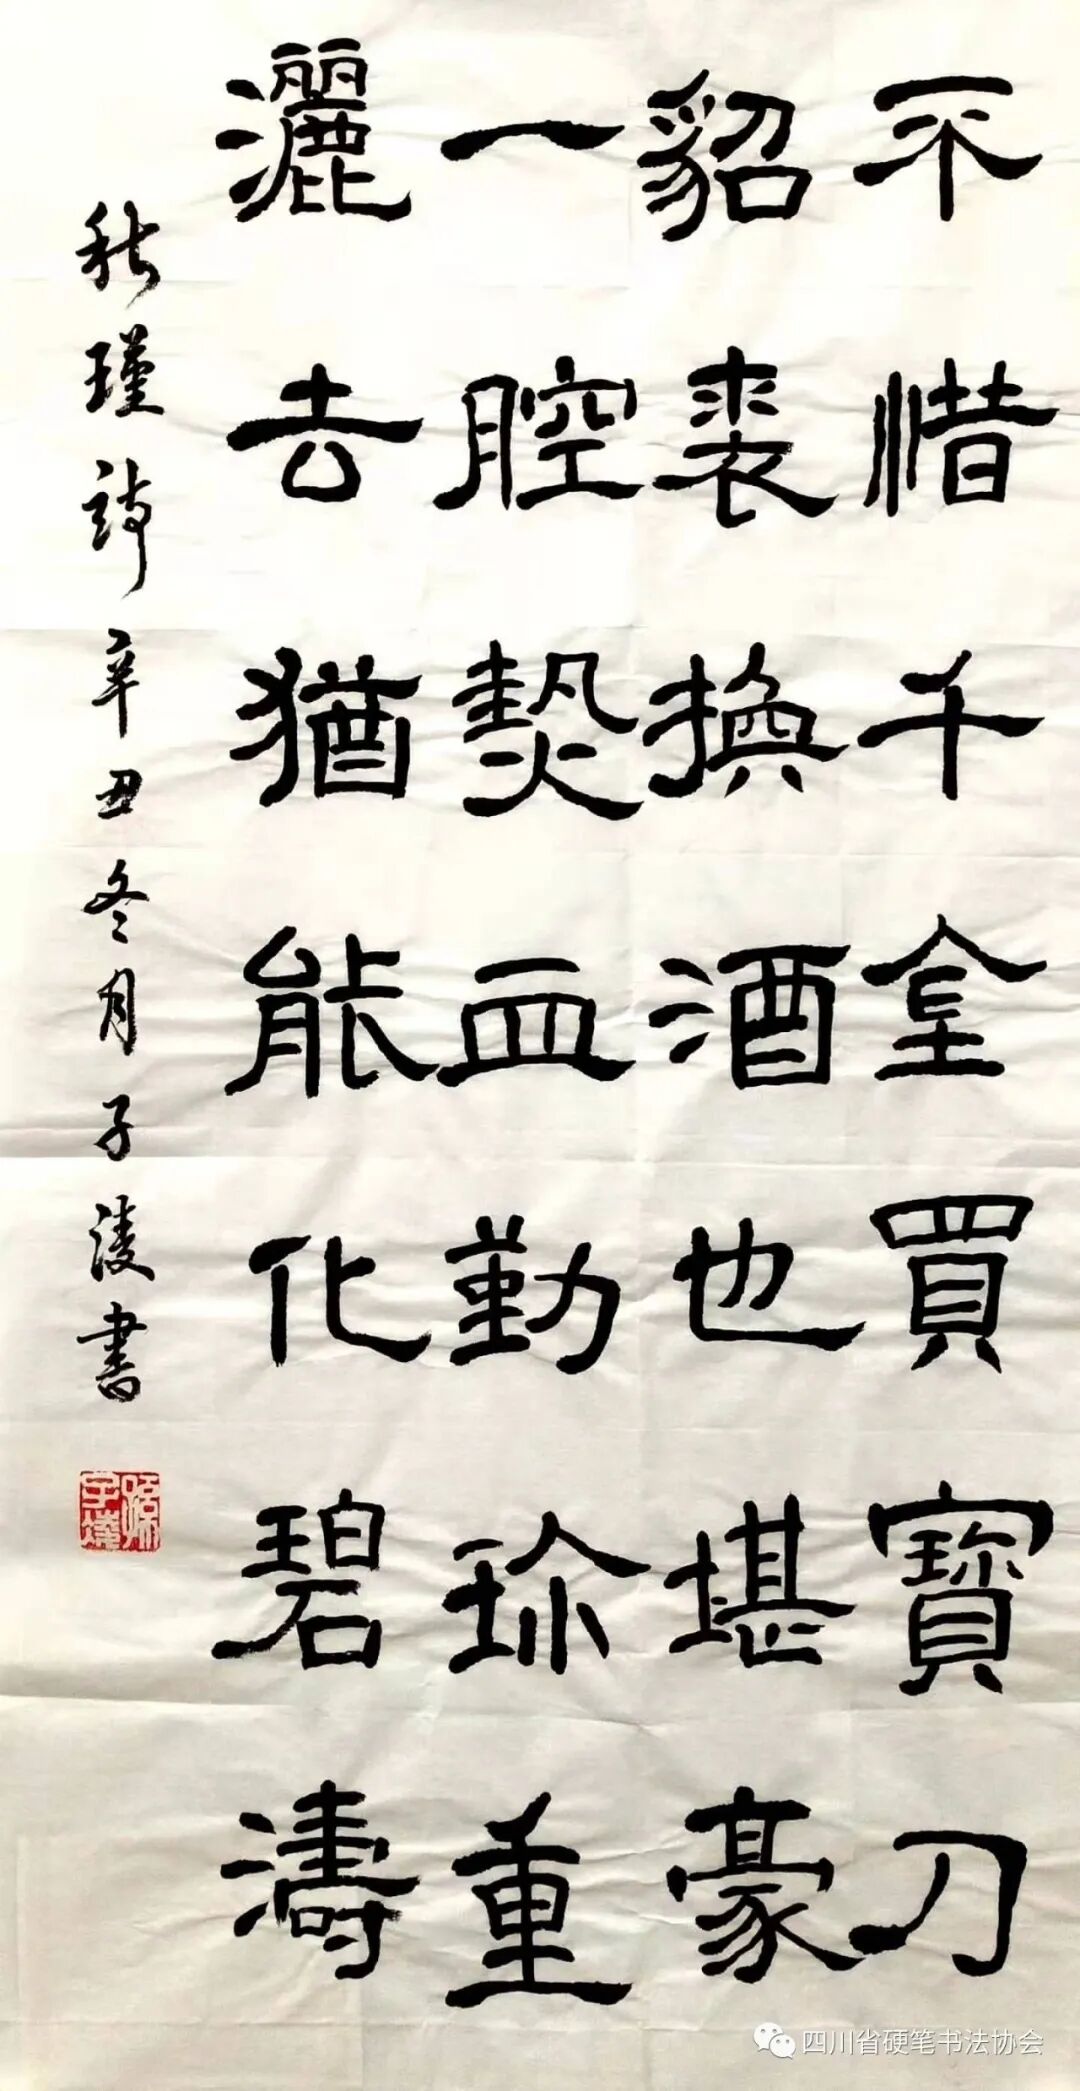 不惜千金買寶刀
貂裘換酒也堪豪
一腔熱血勤珎重
灑去猶能化碧濤
秋瑾詩辛丑冬月子淩書
四川省硬笔书法协会